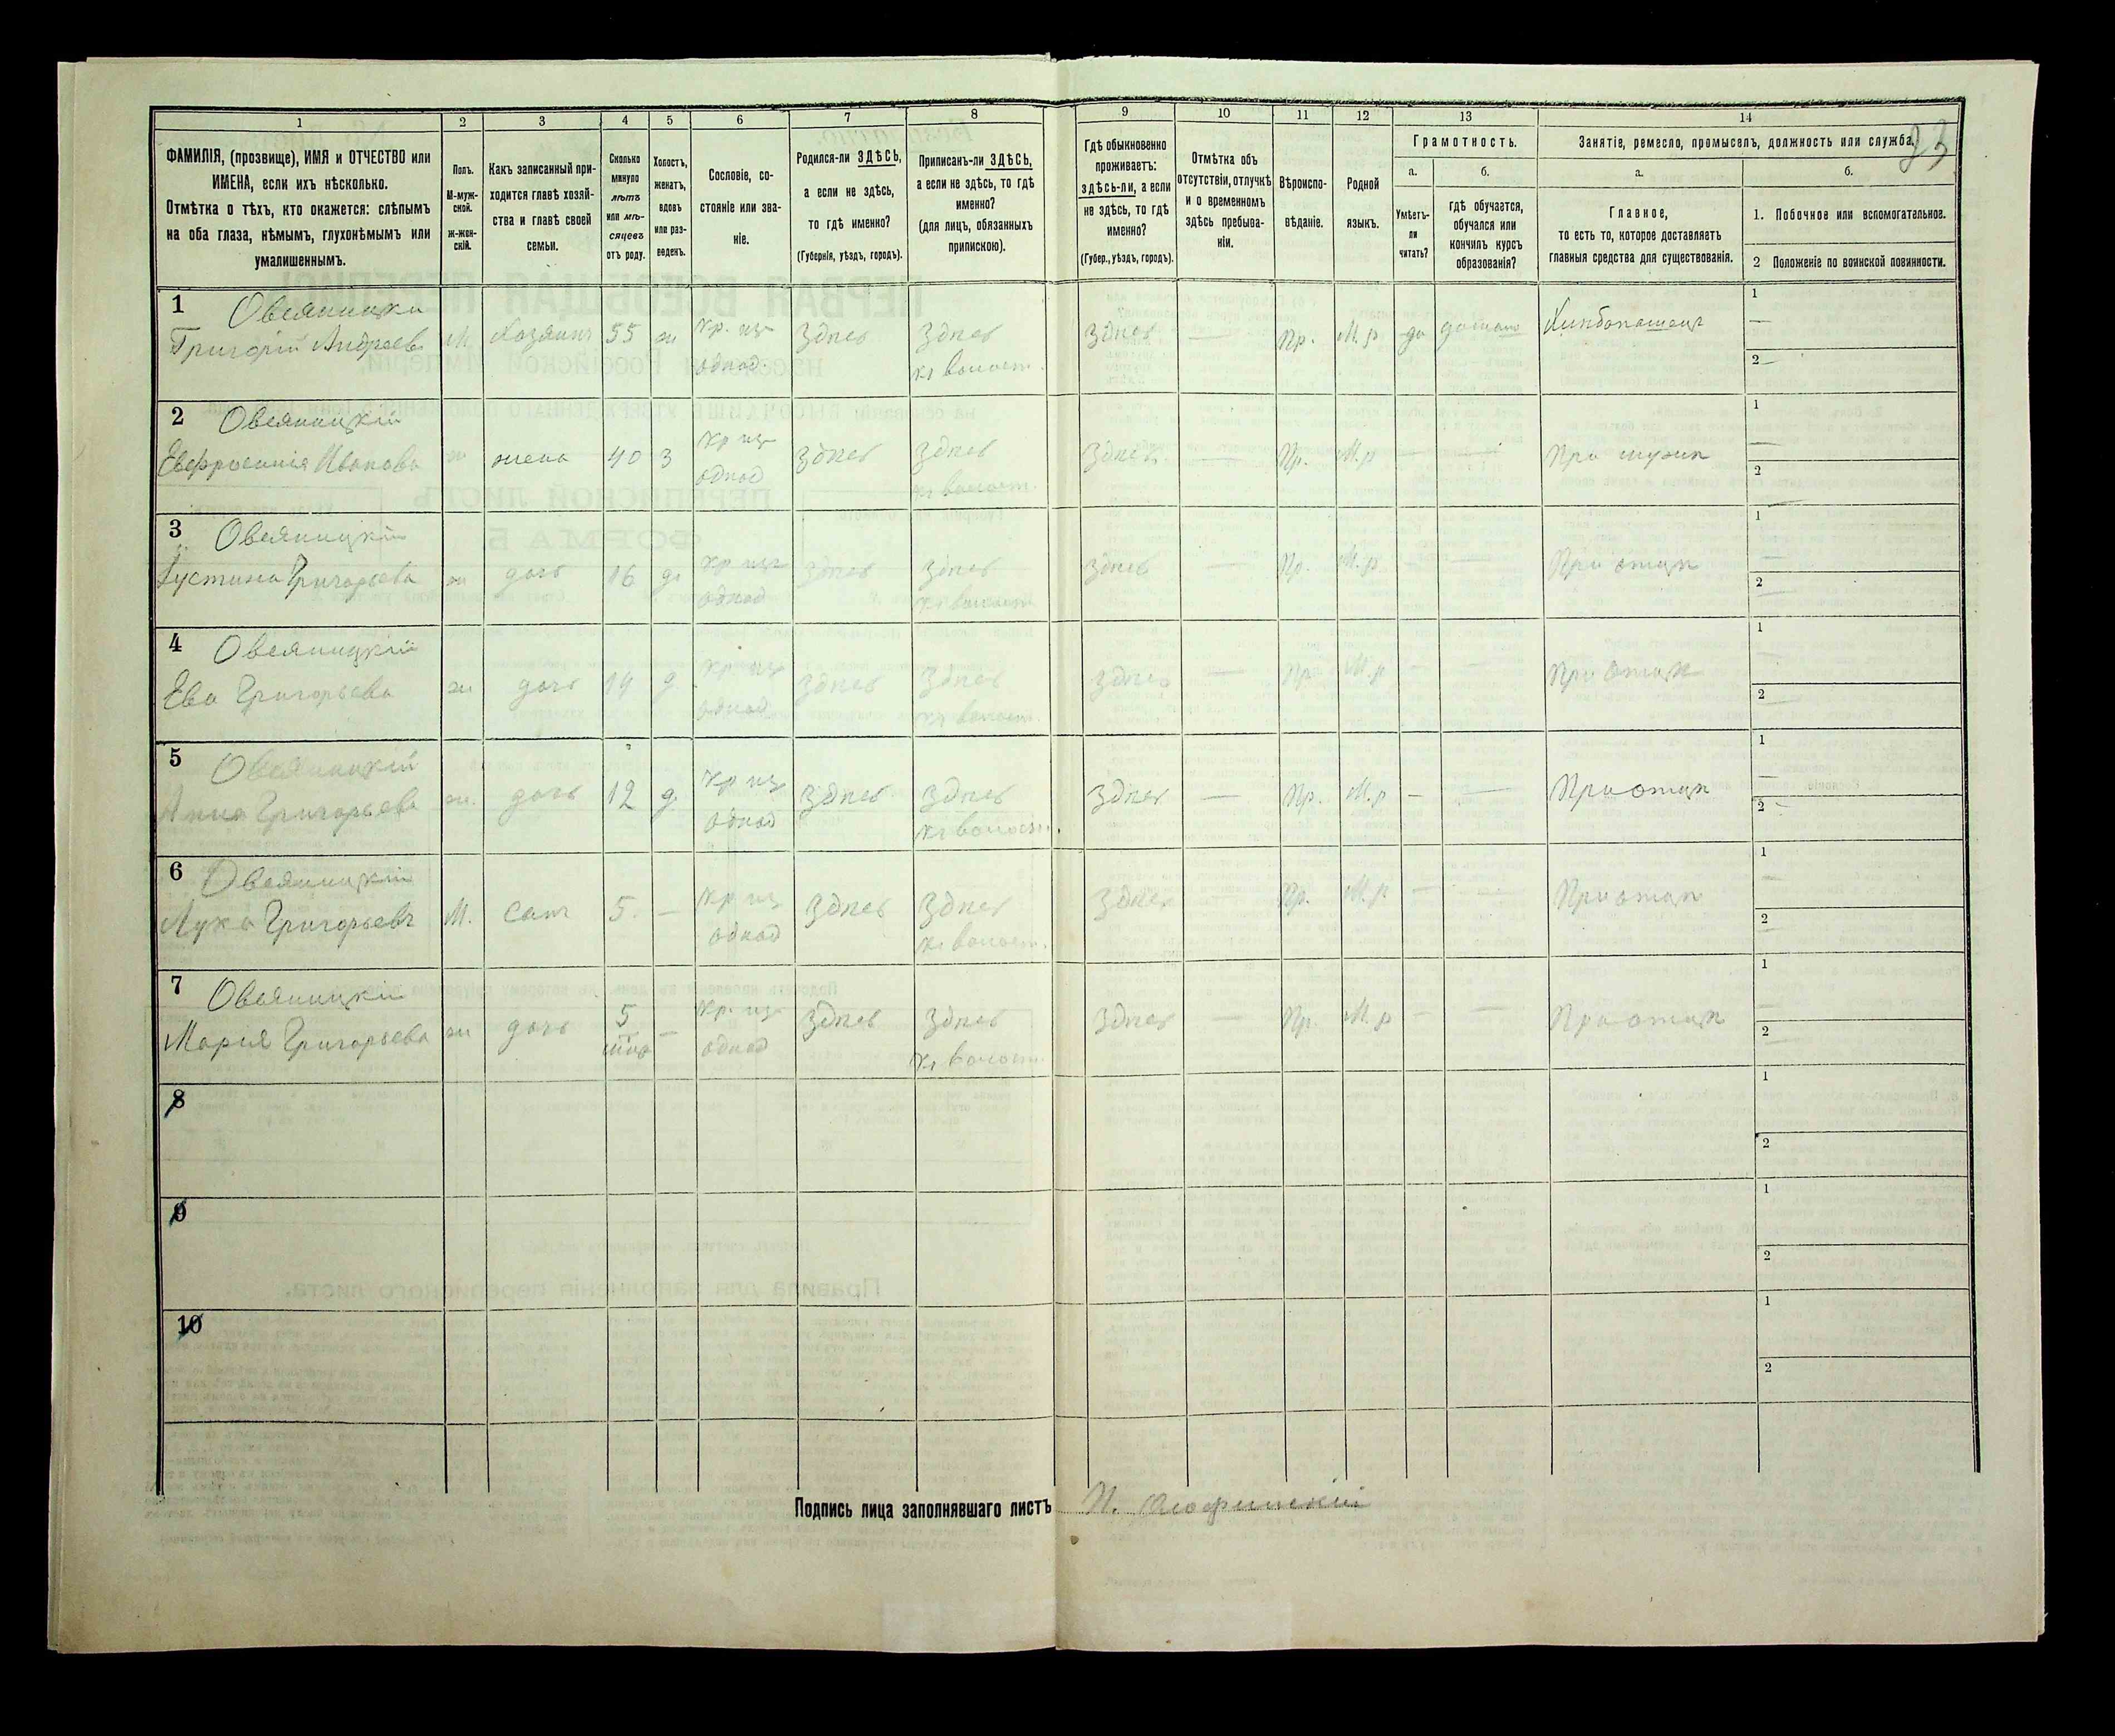 1 2 3 4 5 6 7 8 9 10 11 12 13 14
23
ФАМИЛІЯ, (прозвище), ИМЯ и ОТЧЕСТВО или
ИМЕНА, если ихъ нѣсколько.
Отмѣтка о тѣхъ, кто окажется: слѣпымъ
на оба глаза, нѣмымъ, глухонѣмымъ или
умалишеннымъ.
Полъ.
М-муж-
ской.
Ж-жен-
скій.
Какъ записанный при-
ходится главѣ хозяй-
ства и главѣ своей
семьи.
Сколько
минуло
лѣтъ
или мѣ-
сяцевъ
отъ роду.
Холостъ,
женатъ,
вдовъ
или раз-
веденъ.
Сословіе, со-
стояніе или зва-
ніе.
Родился-ли ЗДѢСЬ,
а если не здѣсь,
то гдѣ именно?
(Губернія, уѣздъ, городъ).
Приписанъ-ли ЗДѢСЬ,
а если не здѣсь, то гдѣ
именно?
(для лицъ, обязанныхъ
припискою).
Гдѣ обыкновенно
проживаетъ:
здѣсь-ли, а если
не здѣсь, то гдѣ
именно?
(Губер., уѣздъ, городъ).
Отмѣтка объ
отсутствіи, отлучкѣ
и о временномъ
здѣсь пребыва-
ніи.
Вѣроиспо-
вѣданіе.
Родной
языкъ.
Грамотность.
а.
Умѣетъ-
ли
читать?
б.
гдѣ обучается,
обучался или
кончилъ курсъ
образованія?
Занятіе, ремесло, промыселъ, должность или служба.
а.
Главное,
то есть то, которое доставляетъ
главныя средства для существованія.
б.
1. Побочное или вспомогательное.
2 Положеніе по воинской повинности.
1 Овсяницки
Григорій Андреев М. Хозяинъ 55 ж кр. изъ однод. Здѣсь Здѣсь къ волост. Здѣсь — Пр. М.р да Хлибопашецъ 1 — 2 —
2 Овсяницкій
Евфросинія Иванова ж жена 40 З кр изъ однод Здѣсь Здѣсь къ волост. Здѣсь — Пр. М.р — — При мужи 1 — 2 —
3 Овсяницкій
Іустина Григорьева ж дочь 16 д. кр изъ однод Здѣсь Здѣсь къ волост. Здѣсь — Пр. М.р — — При отци 1 — 2 —
4 Овсяницкій
Ева Григорьева ж дочь 14 д. кр изъ однод Здѣсь Здѣсь къ волост. Здѣсь — Пр. М.р — — При отци 1 — 2 —
5 Овсяницкій
Анна Григорьева ж. дочь 12 д. кр изъ однод Здѣсь Здѣсь къ волост. Здѣсь — Пр. М.р — — При отци 1 — 2 —
6 Овсяницкій
Лука Григорьевъ М. Синъ 5. — кр изъ однод Здѣсь Здѣсь къ волост. Здѣсь — Пр. М.р — — При отци 1 — 2 —
7 Овсяницкій
Марія Григорьева ж дочь 5 — кр. изъ однод Здѣсь Здѣсь къ волост. Здѣсь — Пр. М.р — — При отци 1 2 —
8 1 2
9 1 2
10 1 2
Подпись лица заполнявшаго листъ